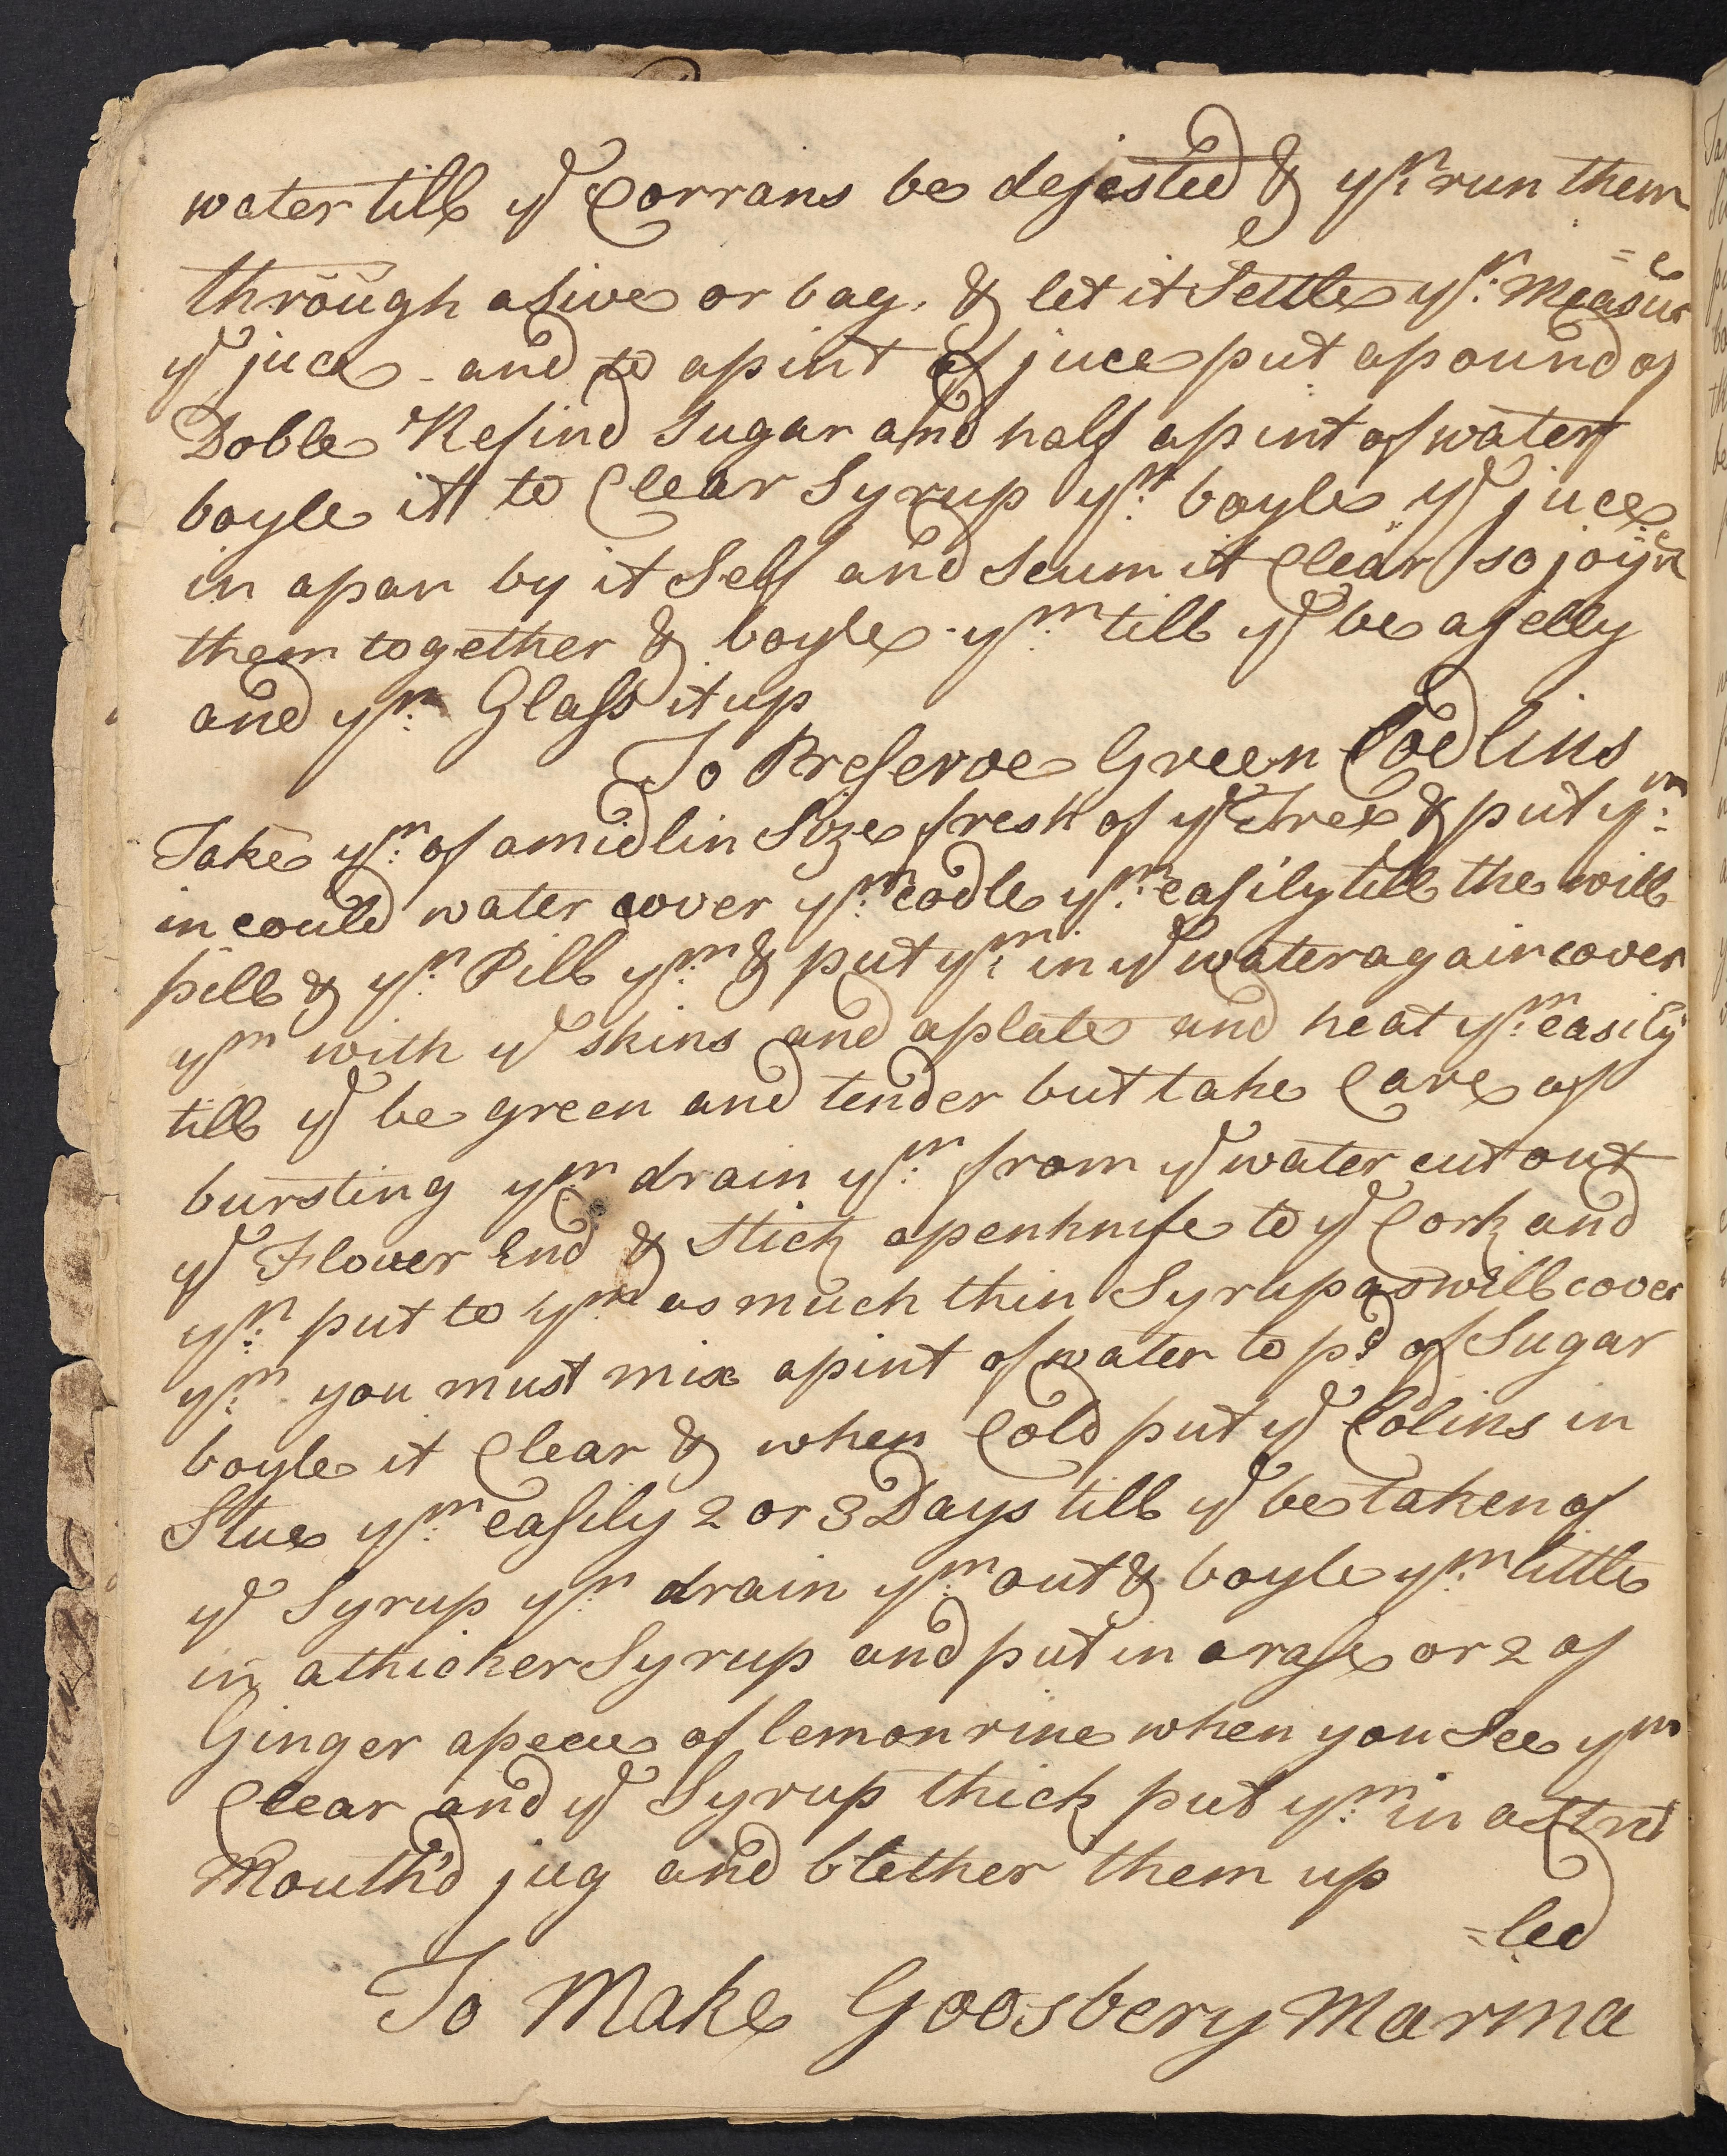 water till ye Corrans be dejested & yn: run them
through a sive or bag. & let it Settle yn: Measur=e
ye juce and to a pint of juce put a pound of
Doble Refind Sugar and half a pint of water
boyle itt to Clear Syrup yn: boyle ye juce
in a pan by it Self and Scum it Clear so joyne
them together & boyle ym: till ye be a jelly
and yn: Glass it up
To Preserve Green Codlins
Take ym: of a midlin Size fresh of ye tree & put ym:
in could water cover ym: codle ym: easily till the will
pill & yn: Pill ym: & put ym: in ye water again cover
ym with ye skins and a plate and heat ym: easily
till ye be green and tender but take Care of
bursting ym drain ym: from ye water cut out
ye Flower End & Stick a penknife to ye Cork and
yn: put to ym as much thin Syrup as will cover
ym: you must mix a pint of water to pd of Sugar
boyle it Clear & when Cold put ye Colins in
Stue ym: easily 2 or 3 Days till ye be taken of
ye Syrup yn: drain ym: out & boyle ym: little
in a thicker Syrup and put in a rase or 2 of
Ginger a pece of lemon rine when you See ym
Clear and ye Syrup thick put ym: in a
Mouth'd jug and blether them up
To Make Goosbery Marma
=led